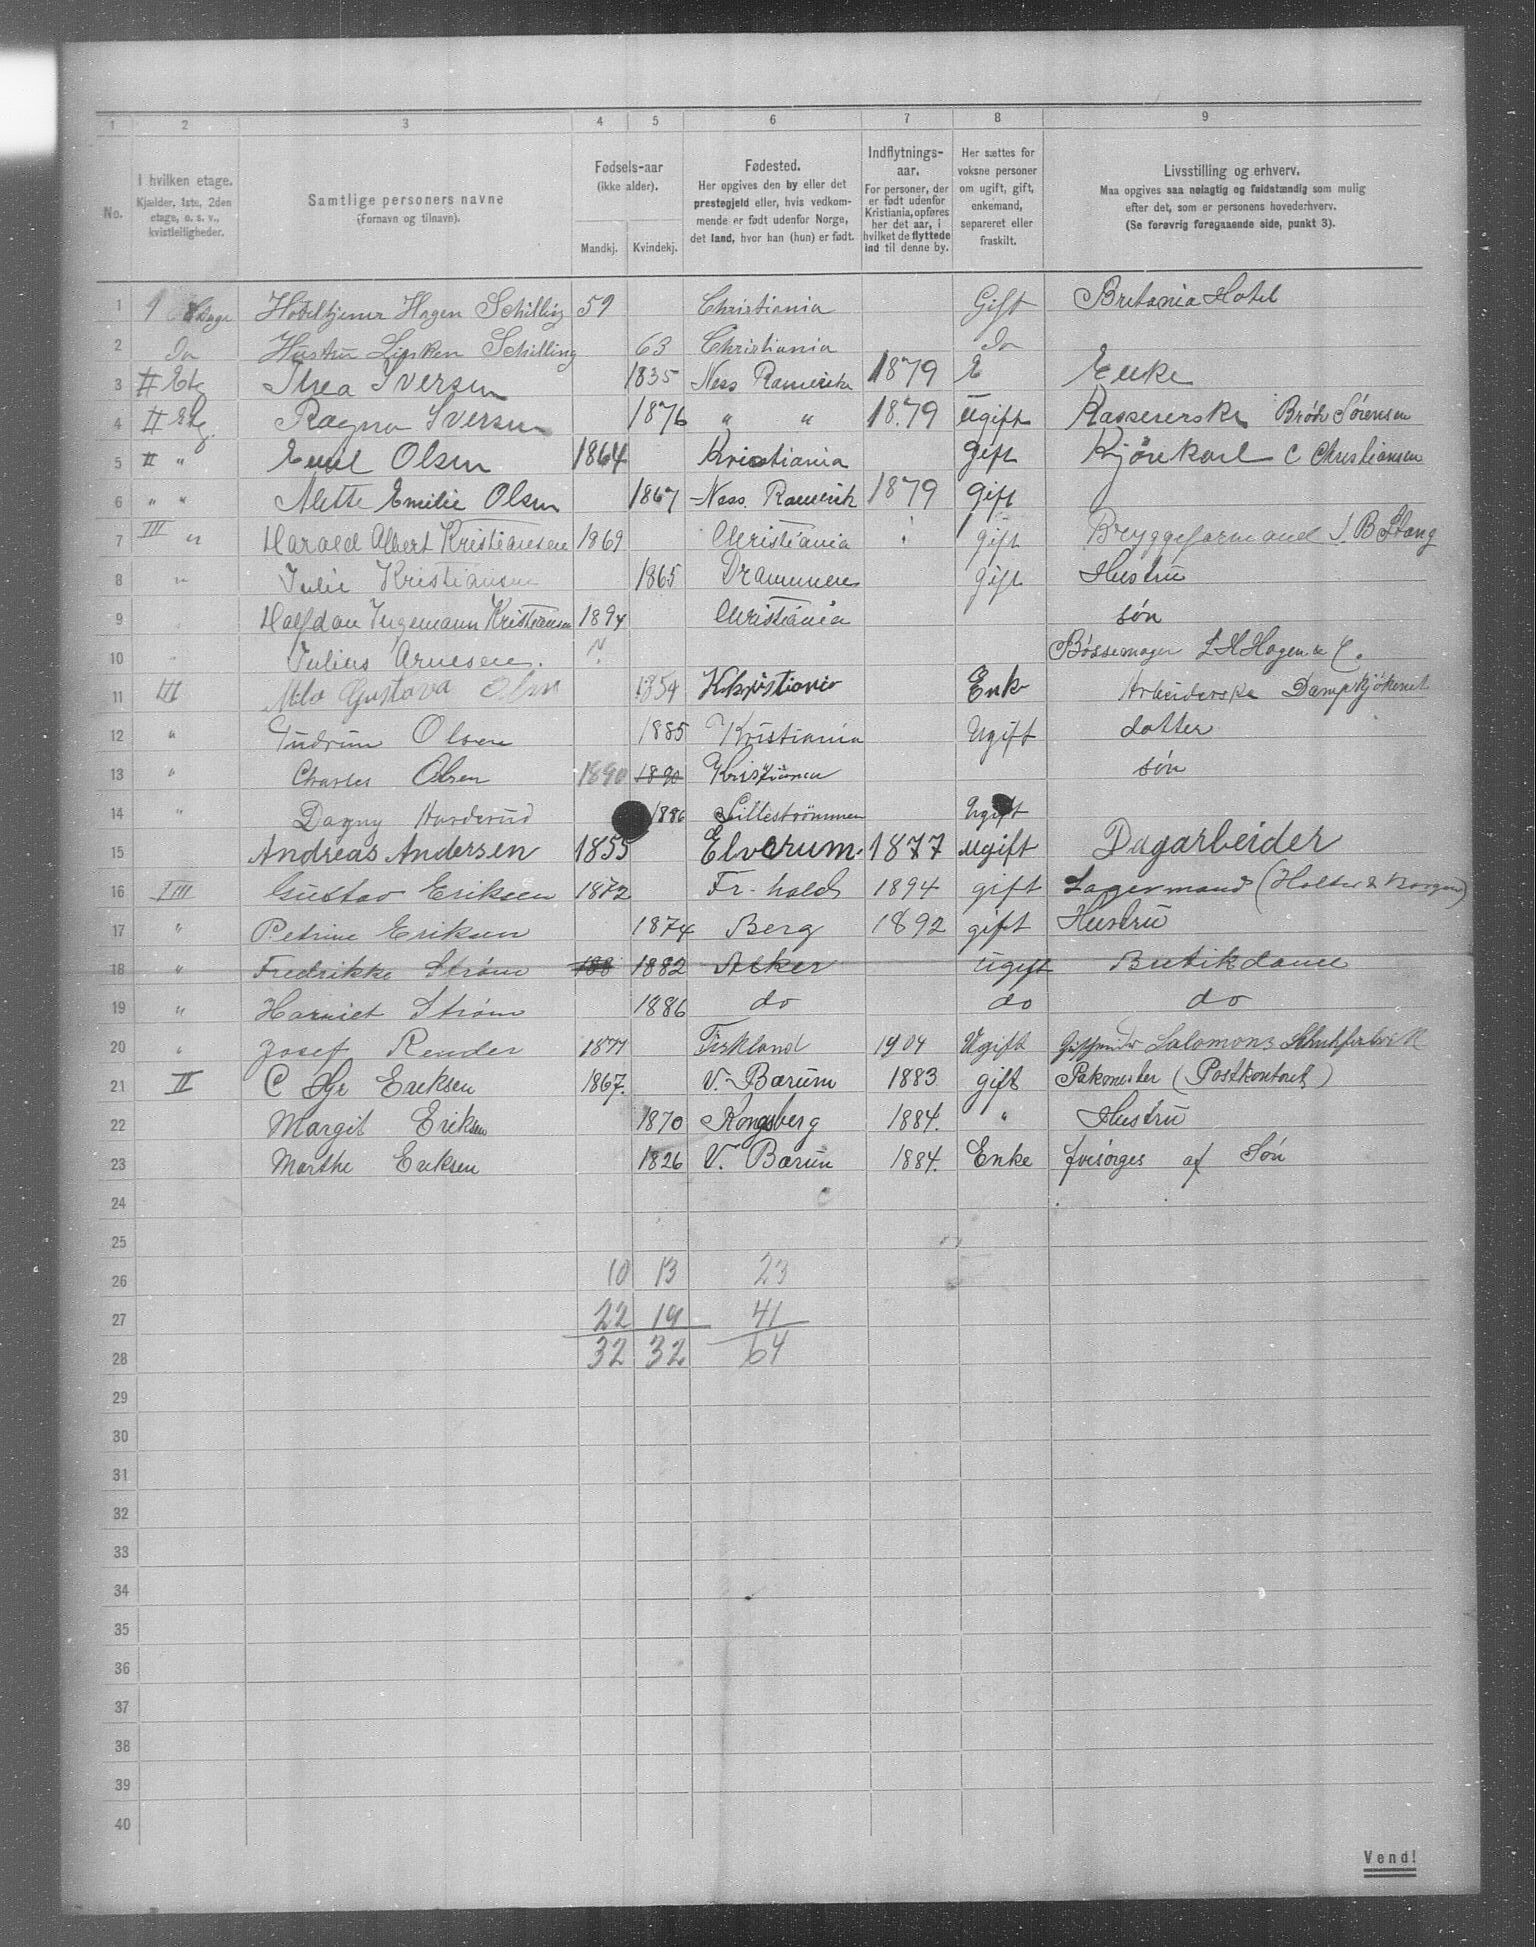 1 2 3 4 5 6 7 8 9
No.
I hvilken etage.
Kjælder, 1ste, 2den
etage, o. s. v.,
kvistleiligheder.
Samtlige personers navne
(Fornavn og tilnavn).
Fødsels-aar
(ikke alder).
Mandkj. Kvindekj.
Fødested.
Her opgives den by eller det
prestegjeld eller, hvis vedkom-
mende er født udenfor Norge,
det land, hvor han (hun) er født.
Indflytnings-
aar.
For personer, der
er født udenfor
Kristiania, opføres
her det aar, i
hvilket de flyttede
ind til denne by.
Her sættes for
voksne personer
om ugift, gift,
enkemand,
separeret eller
fraskilt.
Livsstilling og erhverv.
Maa opgives saa nøiagtig og fuldstændig som mulig
efter det, som er personens hovederhverv.
(Se forøvrig foregaaende side, punkt 3).
1 1 Etage Hoteltjener Hagen Schilling 59 Christiania Gift Britania Hotel
2 do Hustru Schilling 63 Christiania do
3 II Etg Thea Iversen 1835 Ness Romerike 1879 E Enke
4 II Etg. Ragna Iversen 1876 " " 1879 Ugift Kassererske Brødr Sørensen
5 II " Emil Olsen 1864 Kristiania Gift Kjørekarl C Christiansen
6 " " Mette Emilie Olsen 1867 Ness. Romerik 1879 gift
7 III " Harald Albert Kristiansen 1869 Christiania gift Bryggeformand J. B Stang
8 " Julie Kristiansen 1865 Drammen gift Hustru
9 Halfdan Ingemann Kristiansen 1894 Christiania søn
10 " Julius Arnesen. Bøssemager L H Hagen & C.
11 III Gustava Olsen 1854 Kristiania Enke Arbeiderske Dampkjøkenet
12 " Gudrun Olsen 1885 Kristiania Ugift datter
13 " Charles Olsen 1890 1890 Kristiania søn
14 " Dagny 1886 Lillestrømmen Ugift
15 Andreas Andersen 1855 Elverum. 1877 ugift Dagarbeider
16 III Gustav Eriksen 1872 Fr-hald 1894 gift Lagermand (Holter & Borgen)
17 " Petrine Eriksen 1874 Berg 1892 gift Hustru
18 " Fredrikke Strøm 188 1882 Aker Ugift Butikdame
19 " Harriet Strøm 1886 do do do
20 " Josef Render 1877 Tyskland 1904 Ugift Salomons Skofabrik
21 II C Hj Eriksen 1867. V. Bærum 1883 gift Pakmester (Postkontoret)
22 Margit Eriksen 1870 Kongsberg 1884. " Hustru
23 Marthe Eriksen 1826 V. Bærum 1884. Enke forsørges af Søn
24
25
26 10 13 23
27 22 19 41
28 32 32 64
29
30
31
32
33
34
35
36
37
38
39
40
Vend!